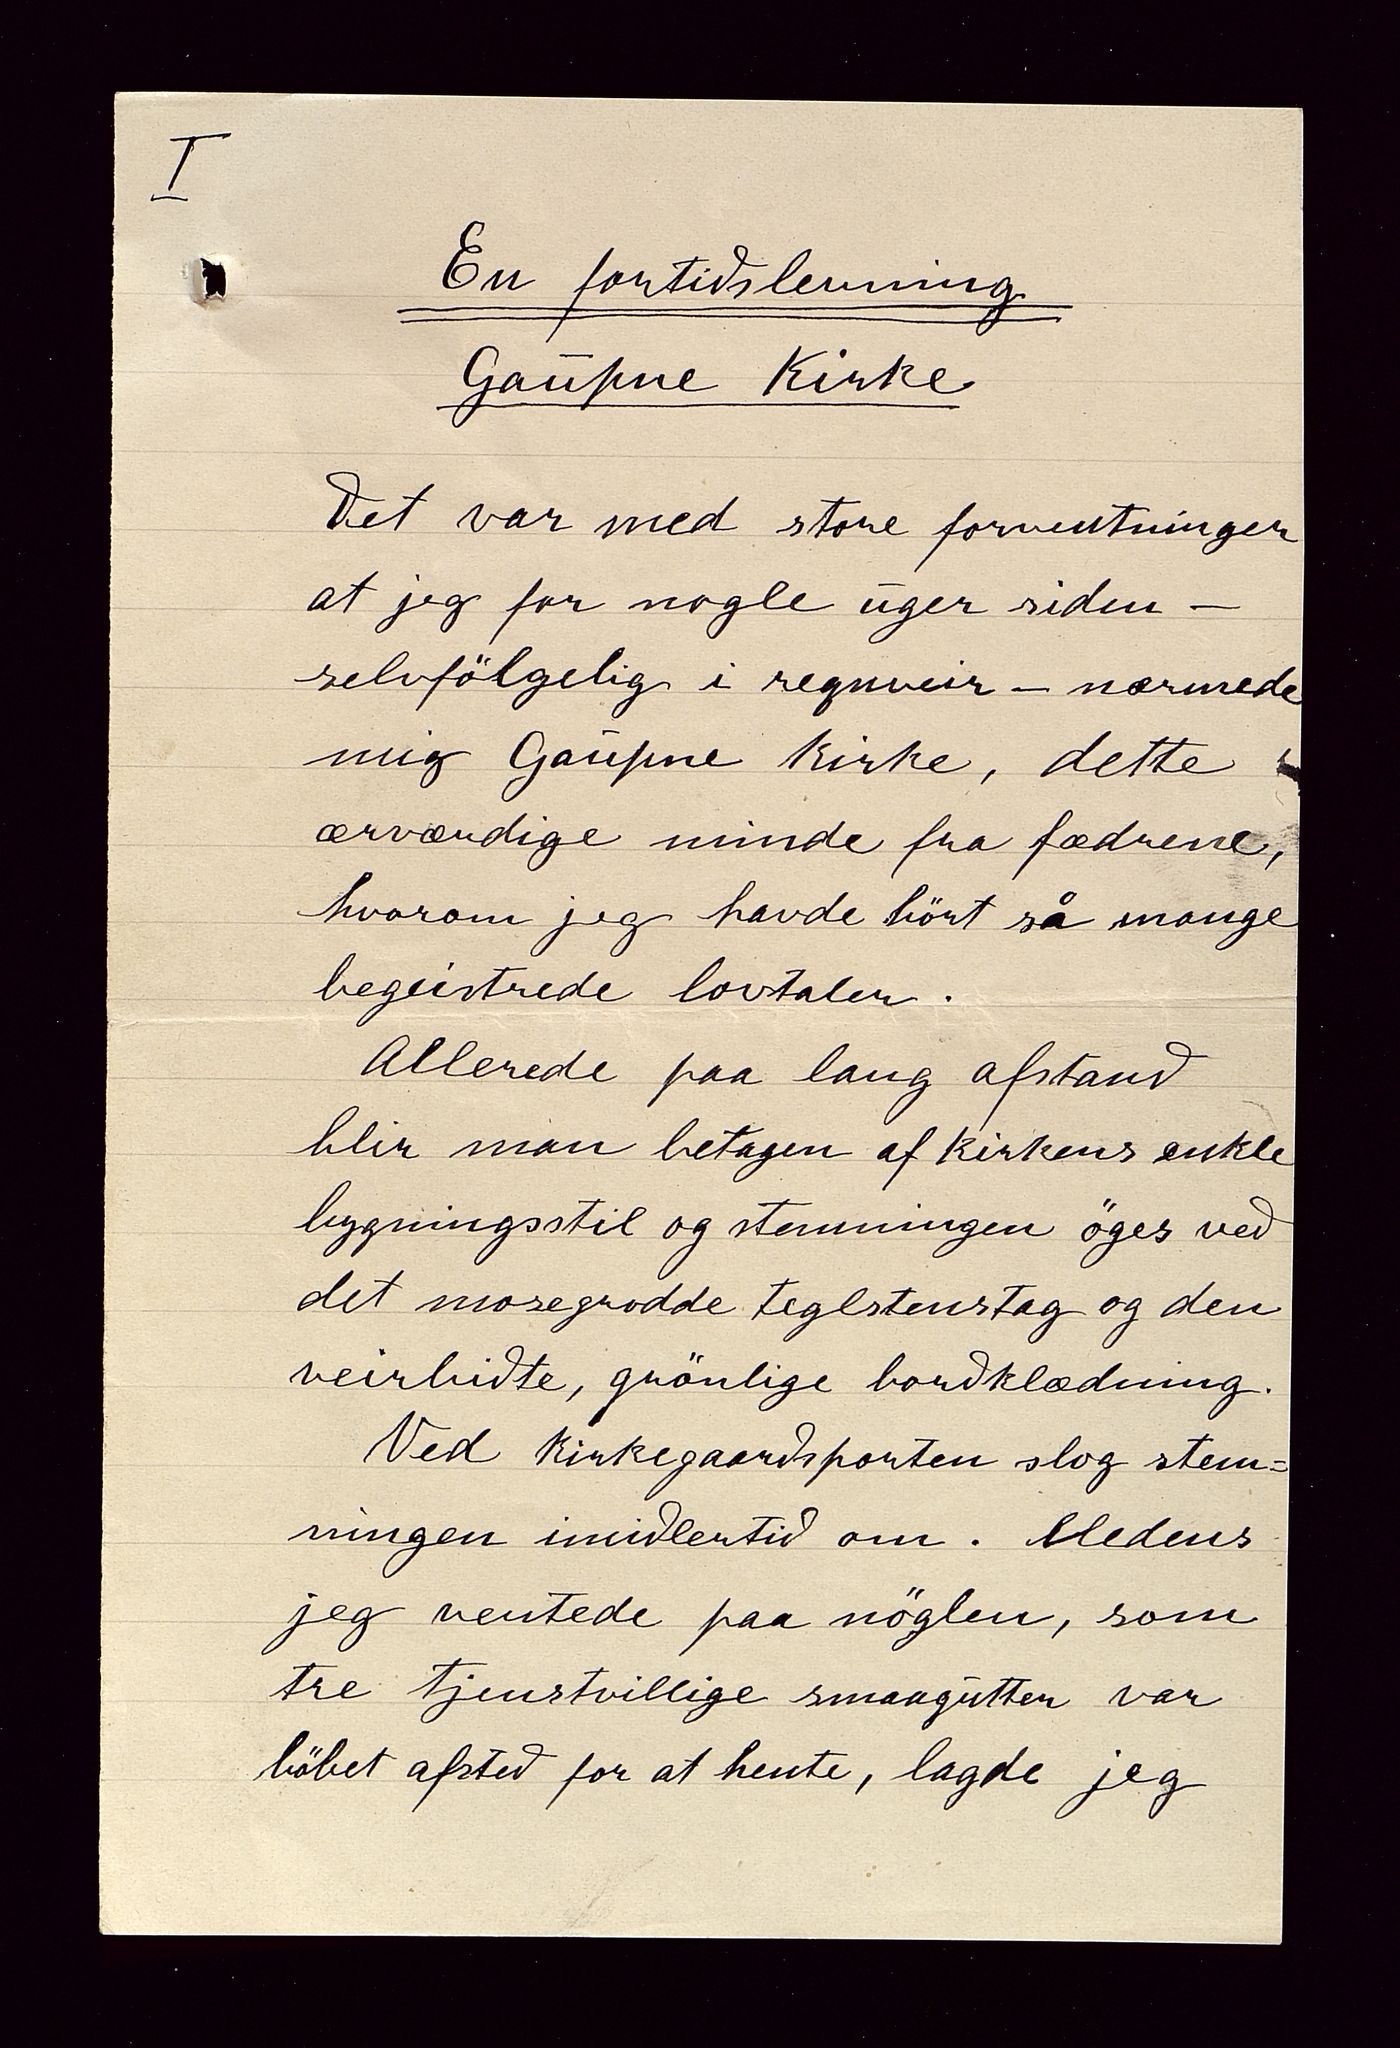 I
En fortidslevning
Gaupne Kirke
Det var med store forventninger
at jeg for nogle uger siden –
selvfölgelig i regnveir – nærmede
mig Gaupne Kirke, dette
ærværdige minde fra fædrene,
hvorom jeg havde hört så mange
begeistrede lovtaler.
Allerede paa lang afstand
blir man betagen af Kirkens enkle
bygningsstil og stemningen öges ved
det mosegrodde teglstenstag og den
veirbidte, grönlige bordklædning.
Ved Kirkegaardsporten slog stem=
ningen imidlertid om. Medens
jeg ventede paa nöglen, som
tre tjenstvillige smaagutter var
löbet afsted for at hente, lagde jeg